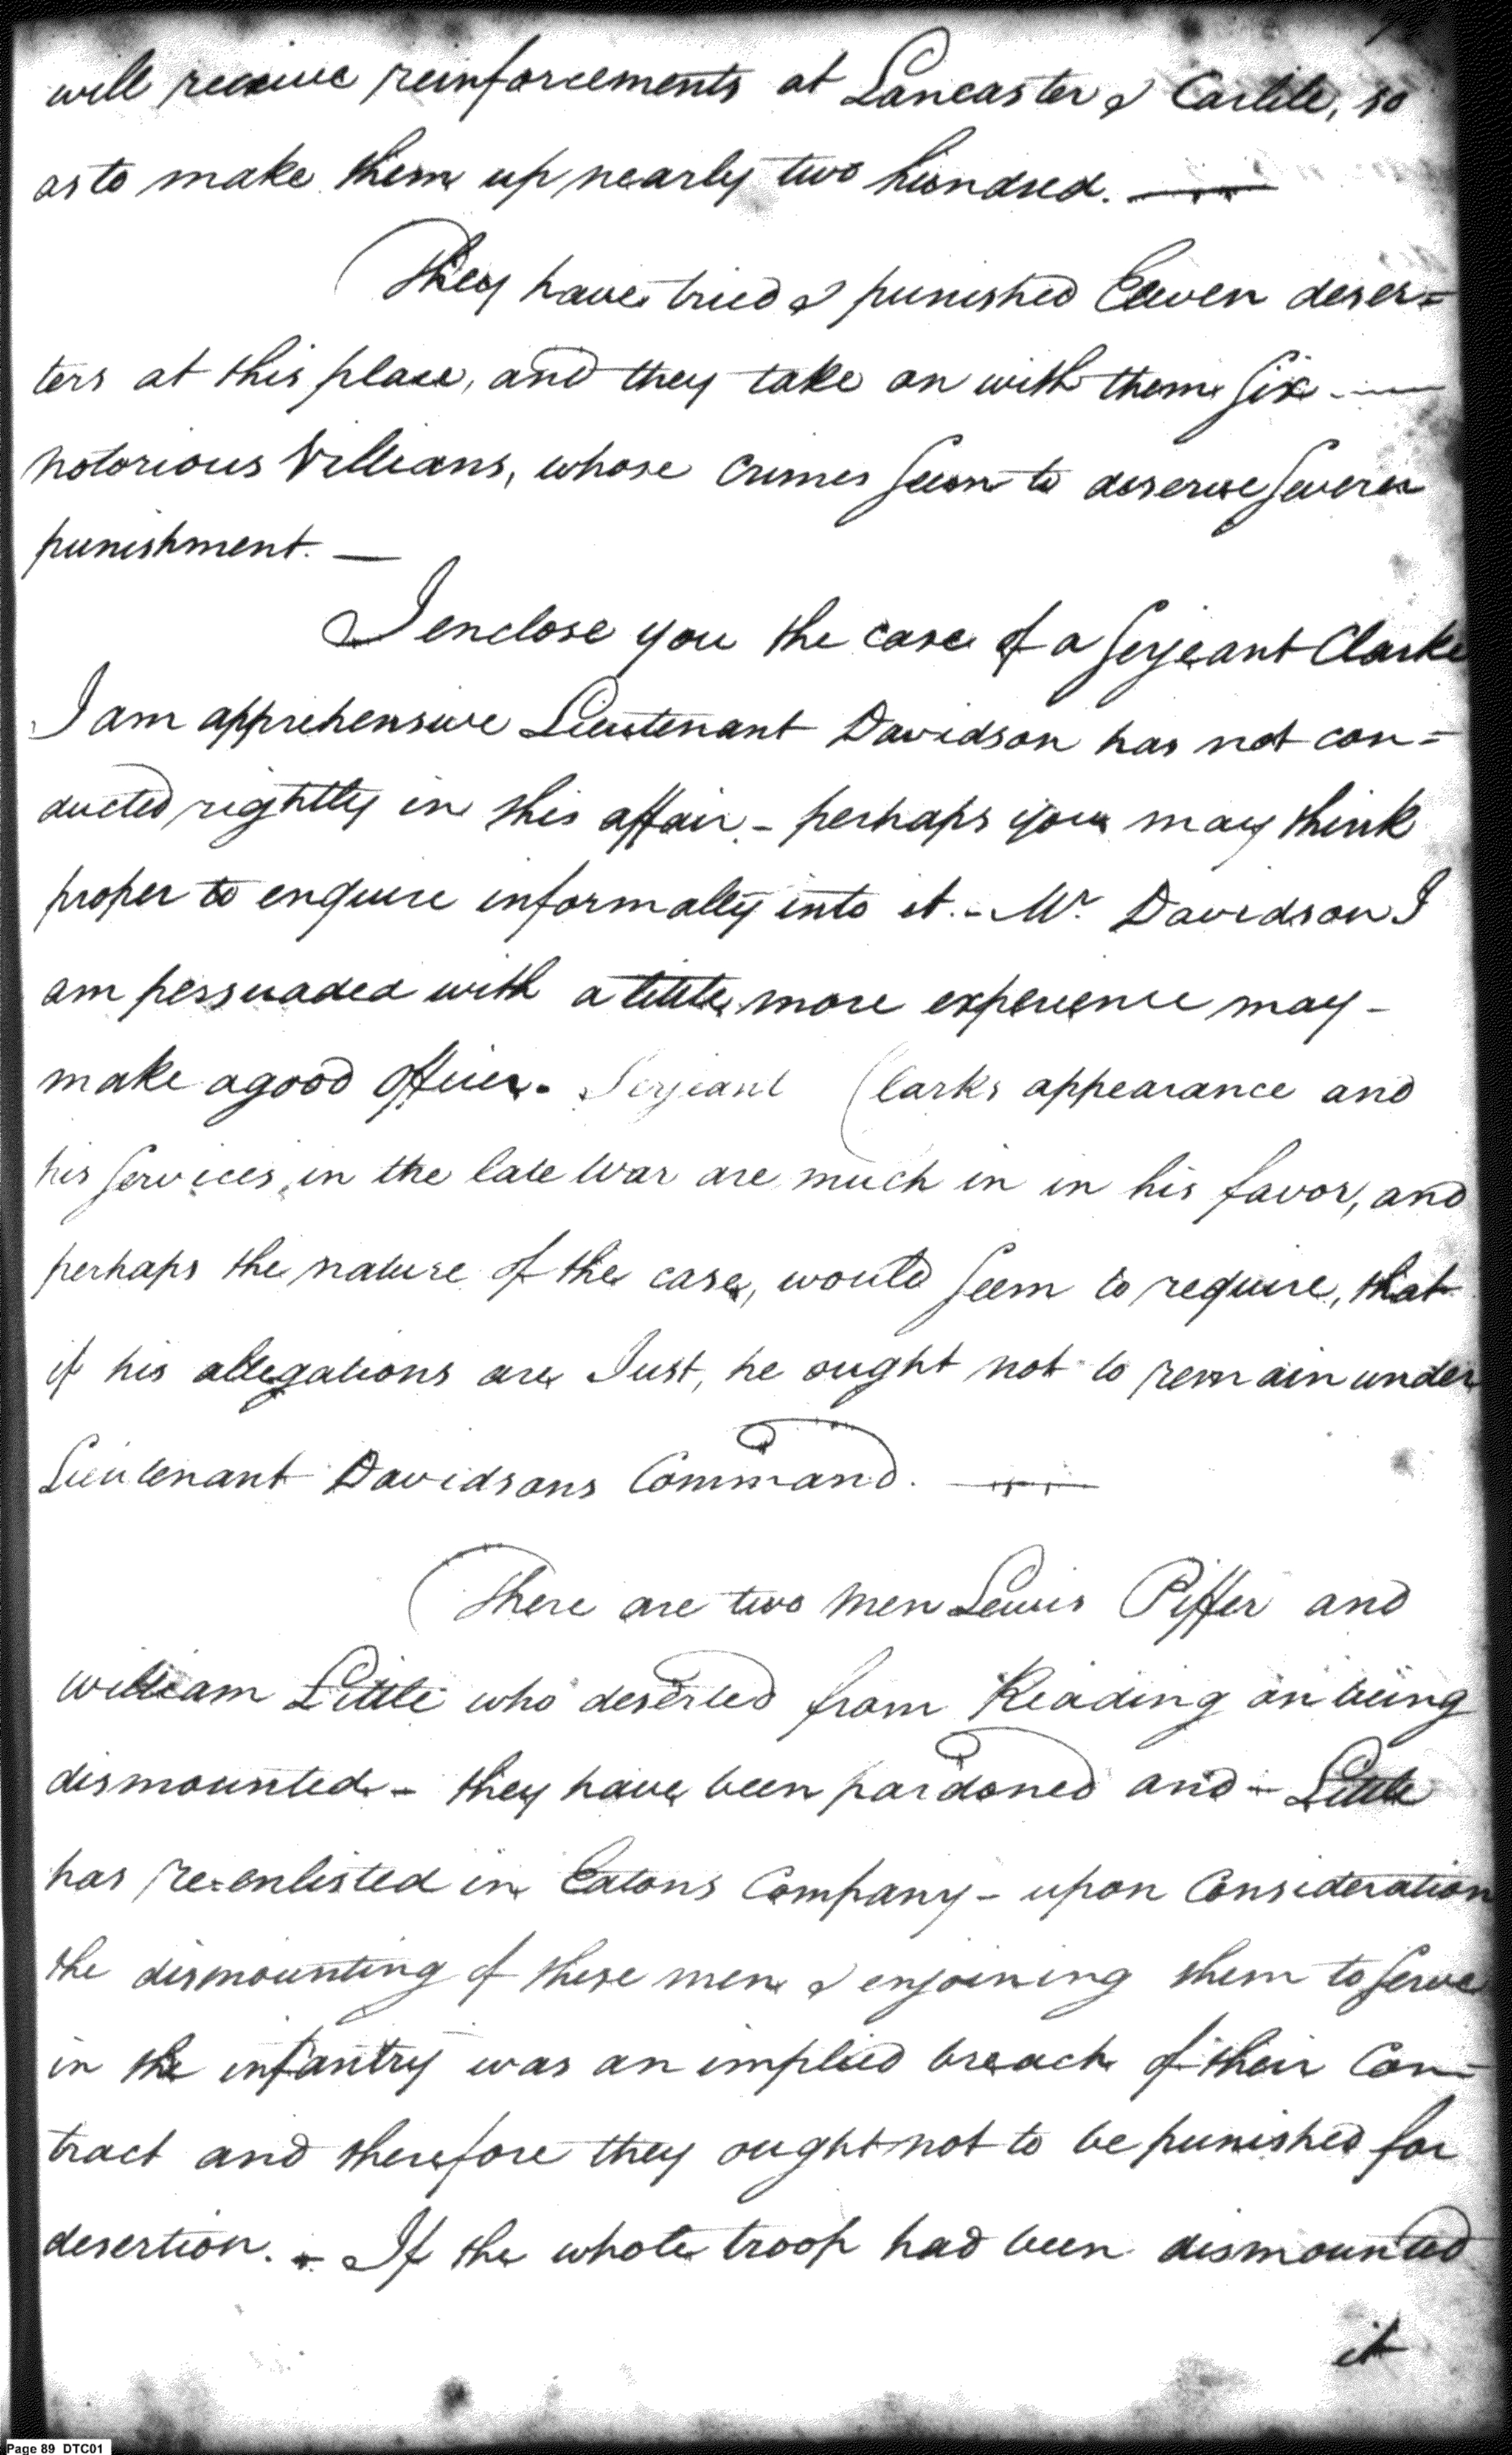 will receive reinforcements at Lancaster & Carlile, so
as to make them up nearly two hundred. —
They have tried & punished Eleven deser=
ters at this place, and they take on with them six —
notorious Villians, whose crimes seem to deserve severe
punishment. —
I enclose you the case of a Serjeant Clarke
I am apprehensive Lieutenant Davidson has not con=
ducted rightly in this affair - perhaps you may think
proper to enquire informally into it. - Mr. Davidson I
am persuaded with a little more experience may -
make a good Officer. Serjeant Clarks appearance and
his services, in the late War are much in in his favor, and
perhaps the nature of the case, would seem to require, that
if his allegations are Just, he ought not to remain under
Lieutenant Davidsons Command. —
There are two men Lewis Piffer and
William Little who deserted from Reading on being
dismounted - they have been pardoned and - Little
has re=enlisted in Eatons Company - upon Consideration
the dismounting of these men & enjoining them to serve
in the infantry was an implied breach of their Con=
tract and therefore they ought not to be punished for
desertion. - If the whole troop had been dismounted
it
Page 89 DTC01